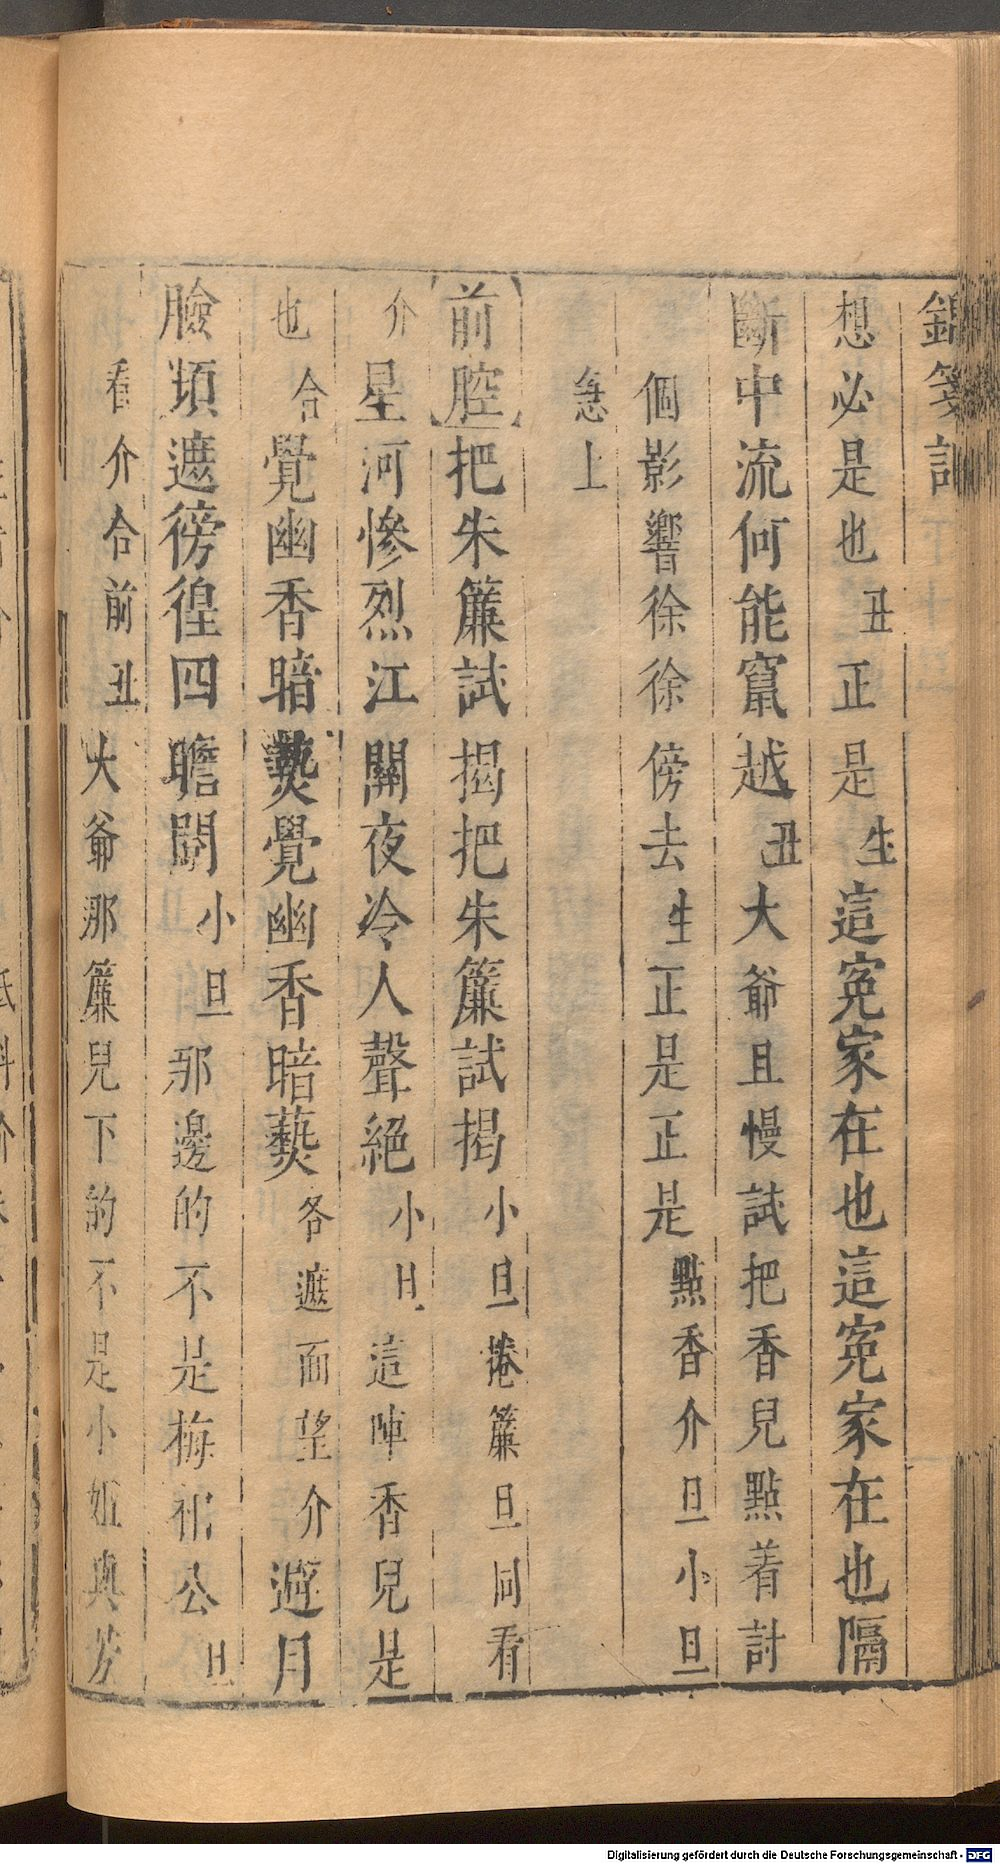 錦箋記
想必是也丑正是生這寃家在也這寃家在也隔
斷中流何能竄越丑大爺且慢試把香兒點着討
個影響徐徐傍去生正是正是點香介旦小旦
急上
前腔把朱簾試揭把朱簾試揭小旦捲簾旦同看
介星河慘烈江關夜冷人聲絕小旦這陣香兒是
也合覺幽香暗爇覺幽香暗爇各遮面望介避月
臉頻遮徬徨四瞻闞小旦那邊的不是梅相公旦
看介合前丑大爺那簾兒下的不是小姐與芳
Digitalisierung gefördert durch die Deutsche Forschungsgemeinschaft - DFG